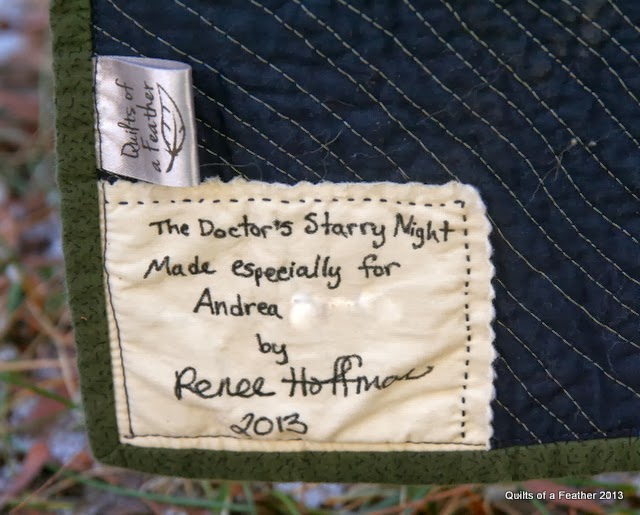 Quilts of
a Feather
The Doctor's Starry Night
Made especially for
Andrea
by
Renee Hoffman
2013
Quilts of a Feather 2013